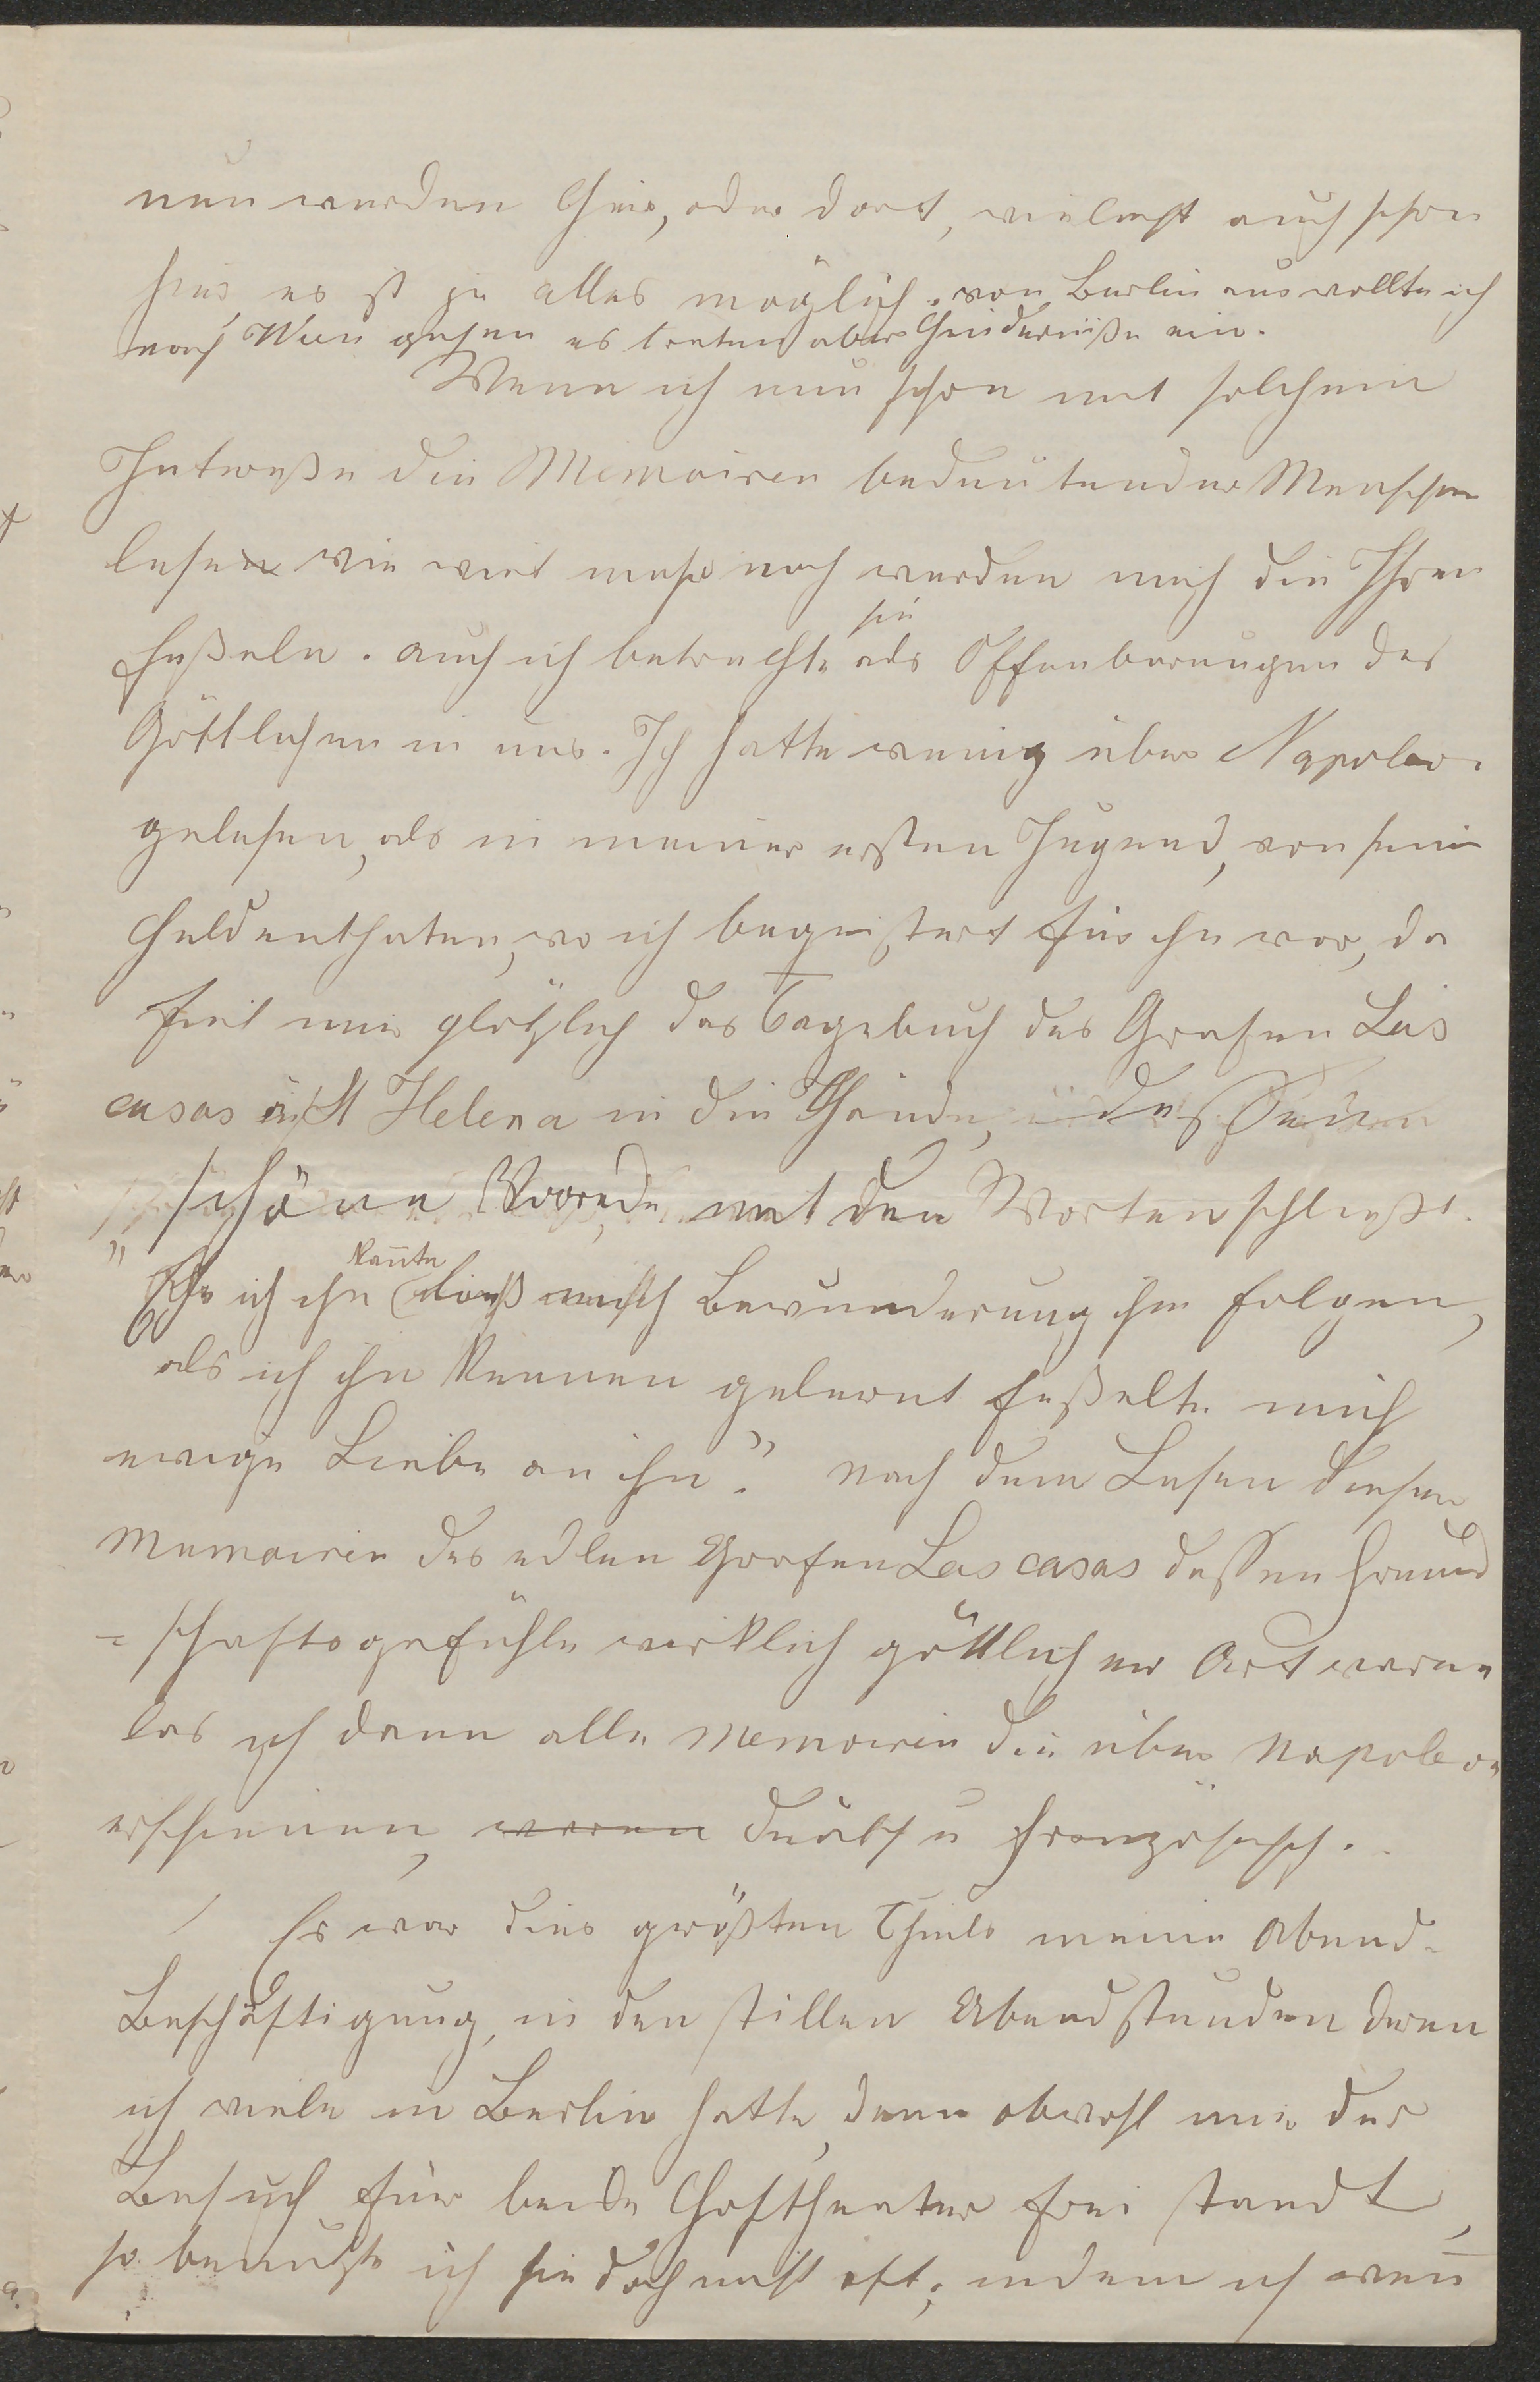 nun werden Hier, oder dort, vieleicht auch schon
hier, es ist ja alles möglich. von Berlin aus wollte ich
nach Wien gehen es traten aber Hinderniße ein.
Wenn ich nun schon mit solchem
Intereße die Memoiren bedeutender Menschen
lese wie viel mehr noch werden mich die Ihren
feßeln. auch ich betrachte sie als Offenbarungen des
Göttlichen in uns. Ich hatte wenig über Napoleon
gelesen, als in meiner ersten Jugend, von seinen
Heldenthaten, wo ich begeistert für ihn war, da
fiel mir plötzlich das Tagebuch des Grafen Las
casas in St Helena in die Hände, deßen
schöne Vorrede, mit den Worten schließt.
"Ehe ich ihn kannte ließ mich Bewunderung ihm folgen,
als ich ihn kennen gelernt feßelte mich
ewige Liebe an ihn." nach dem Lesen dieser
Memoiren des edlen Grafen Las casas deßen Freund
=schaftsgefühle wirklich göttlicher Art waren
las ich dann alle Memoiren die über Napoleon
erschienen, waren deutsch u französisch.
Es war dies größten Theils meine Abend-
Beschäftigung, in den stillen Abendstunden deren
ich viele in Berlin hatte, denn obwohl mir der
Besuch für beide Hoftheater frei standt,
so benutzte ich sie doch nicht oft; indem ich wenn